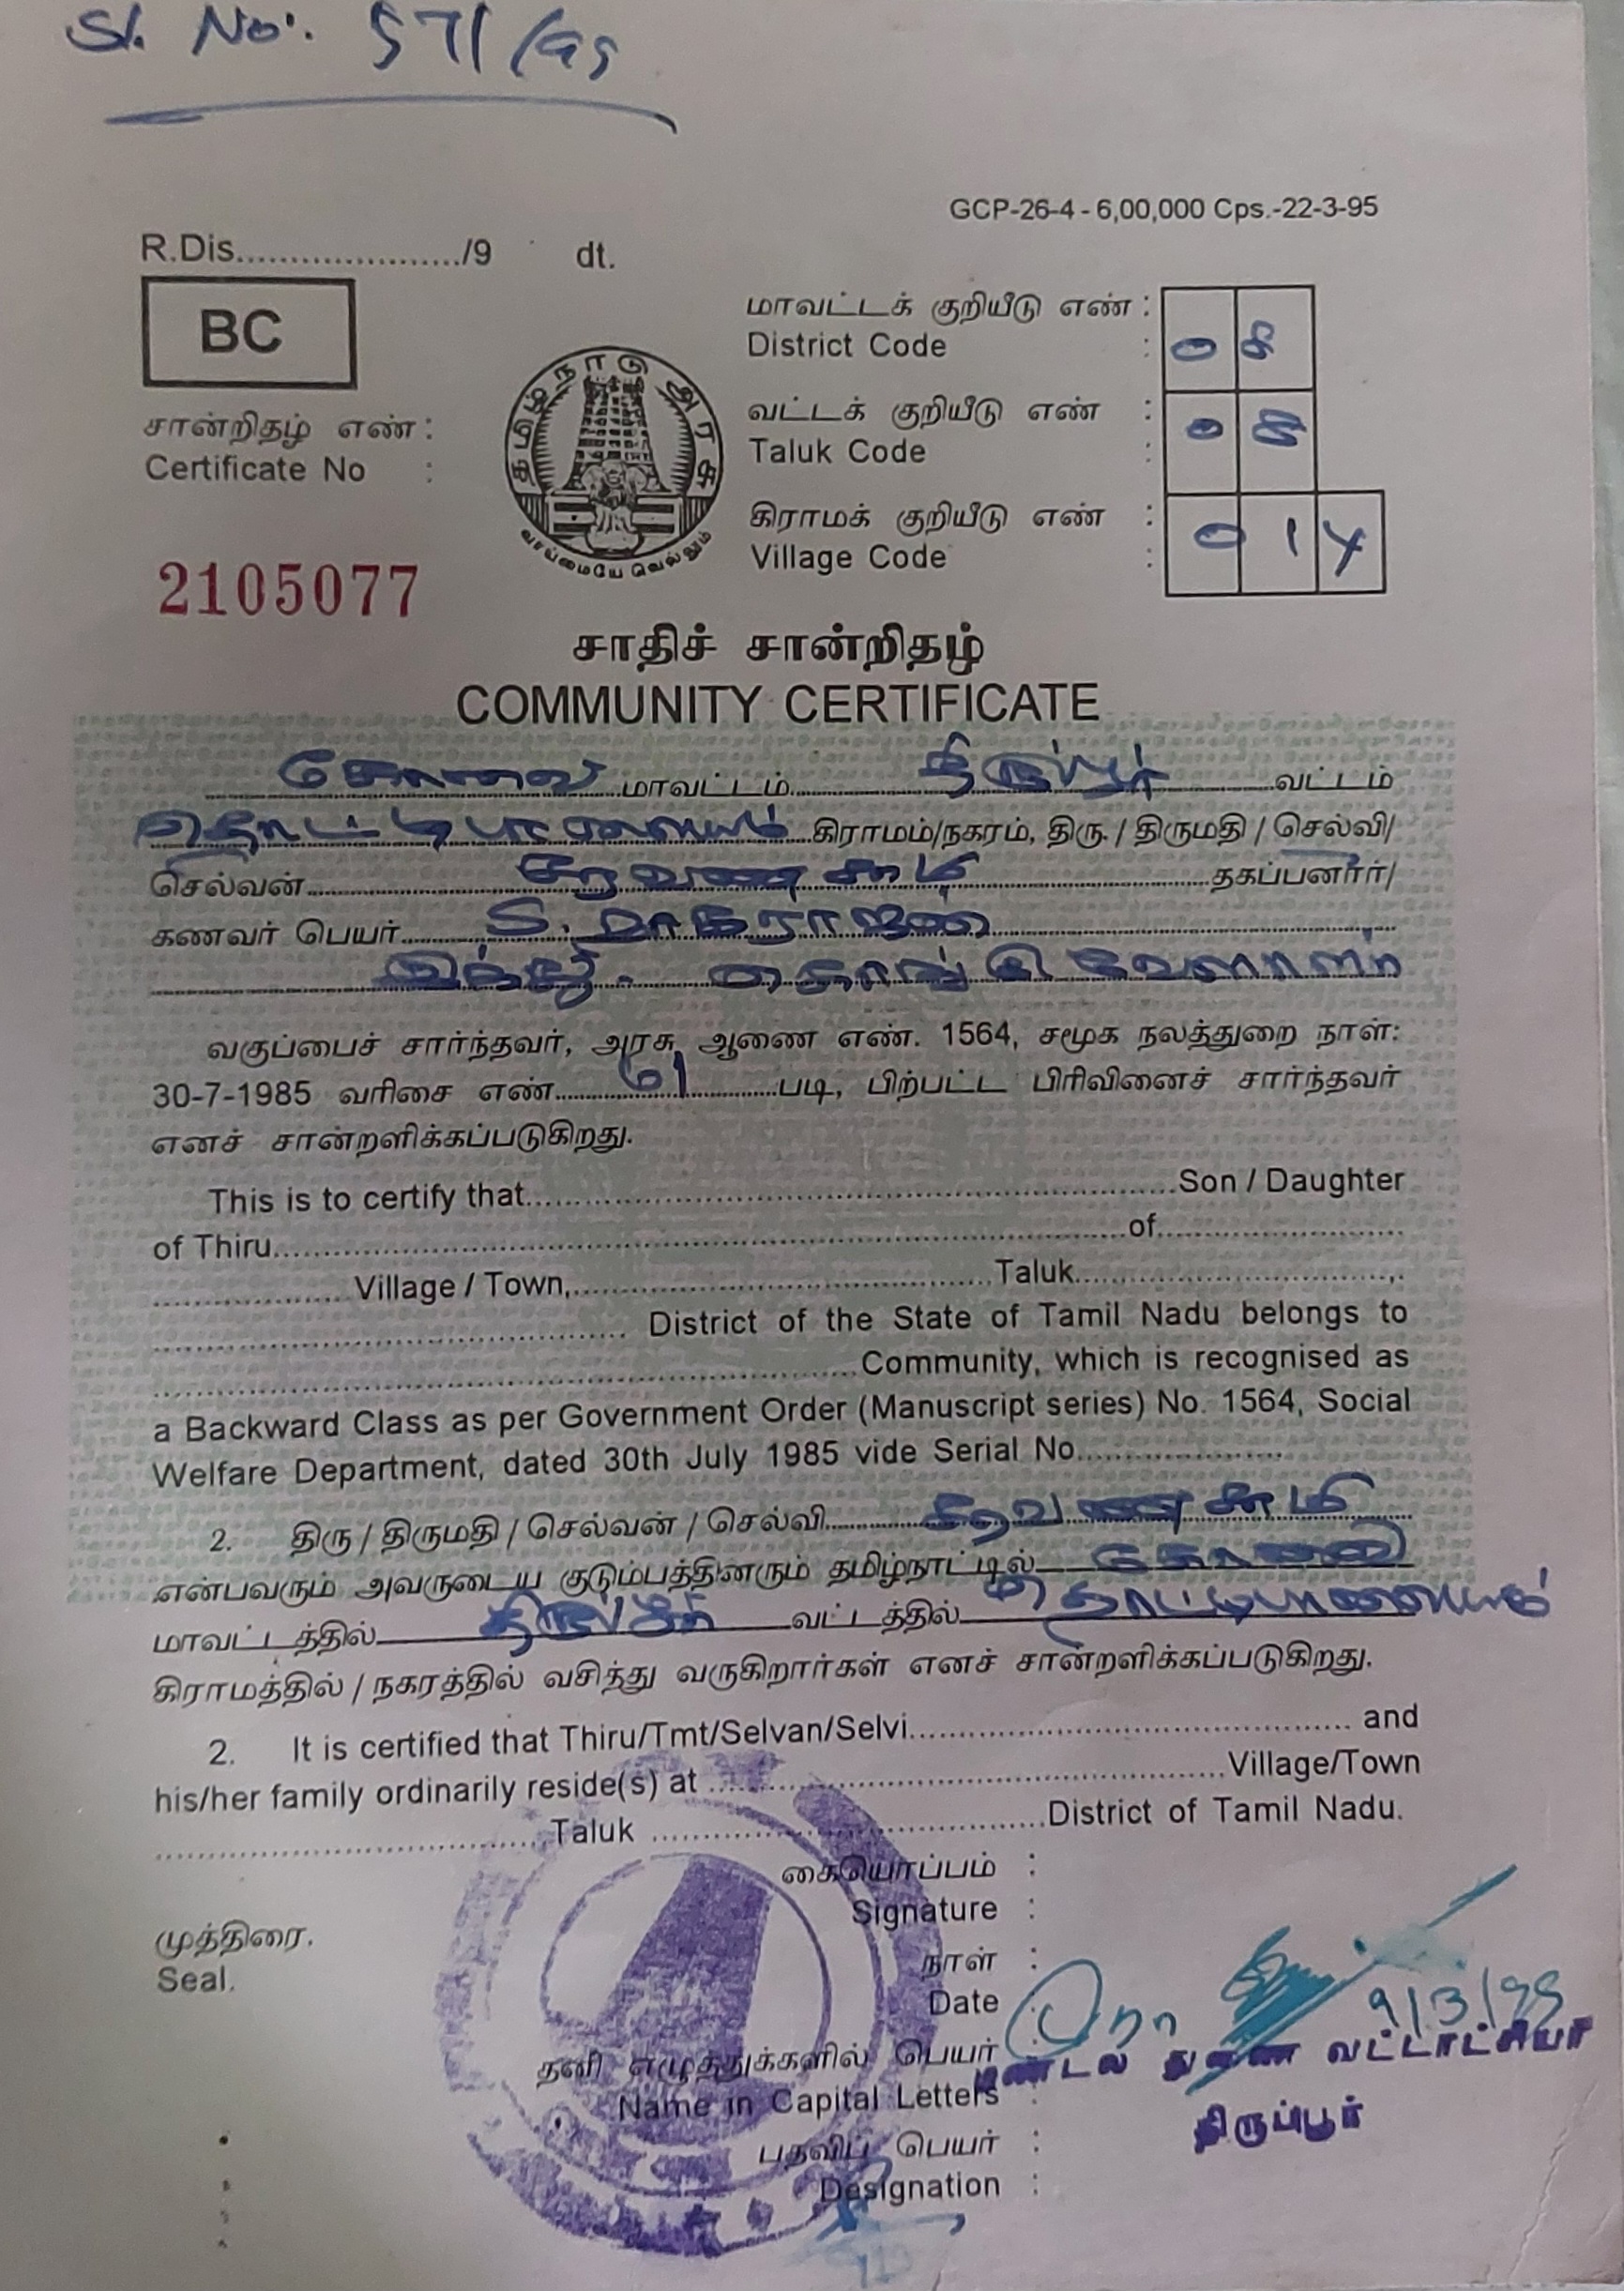 Sl. No: 571/95
GCP-26-4 - 6,00,000 Cps.-22-3-95
R.Dis...................../9 dt.
BC
மாவட்டக் குறியீடு எண் :
District Code : 0 8
வட்டக் குறியீடு எண் :
Taluk Code : 0 8
கிராமக் குறியீடு எண் :
Village Code : 0 1
தமிழ்நாடு அரசு
வாய்மையே வெல்லும்
சான்றிதழ் எண் :
Certificate No :
2105077
சாதிச் சான்றிதழ்
COMMUNITY CERTIFICATE
கோவை மாவட்டம் திருப்பூர் வட்டம்
தொட்டிபாளையம் கிராமம்/நகரம், திரு. / திருமதி / செல்வி/
செல்வன் தகப்பனார்/
கணவர் பெயர் S. நாகராஜன்
இந்து. கொங்கு வேளாளர்
வகுப்பைச் சார்ந்தவர், அரசு ஆணை எண். 1564, சமூக நலத்துறை நாள்:
30-7-1985 வரிசை எண் படி, பிற்பட்ட பிரிவினைச் சார்ந்தவர்
எனச் சான்றளிக்கப்படுகிறது.
This is to certify that Son / Daughter
of Thiru of
Village / Town, Taluk
District of the State of Tamil Nadu belongs to
Community, which is recognised as
a Backward Class as per Government Order (Manuscript series) No. 1564, Social
Welfare Department, dated 30th July 1985 vide Serial No.
2. திரு / திருமதி / செல்வன் / செல்வி
என்பவரும் அவருடைய குடும்பத்தினரும் தமிழ்நாட்டில் கோவை
மாவட்டத்தில் திருப்பூர் வட்டத்தில் தொட்டிபாளையம்
கிராமத்தில் / நகரத்தில் வசித்து வருகிறார்கள் எனச் சான்றளிக்கப்படுகிறது.
2. It is certified that Thiru/Tmt/Selvan/Selvi and
his/her family ordinarily reside(s) at Village/Town
Taluk District of Tamil Nadu.
கையொப்பம் :
Signature :
முத்திரை.
Seal.
நாள் :
Date : 9/3/95
தனி எழுத்துக்களில் பெயர் :
மண்டல துணை வட்டாட்சியர்
Name in Capital Letters :
திருப்பூர்
பதவிப் பெயர் :
Designation :